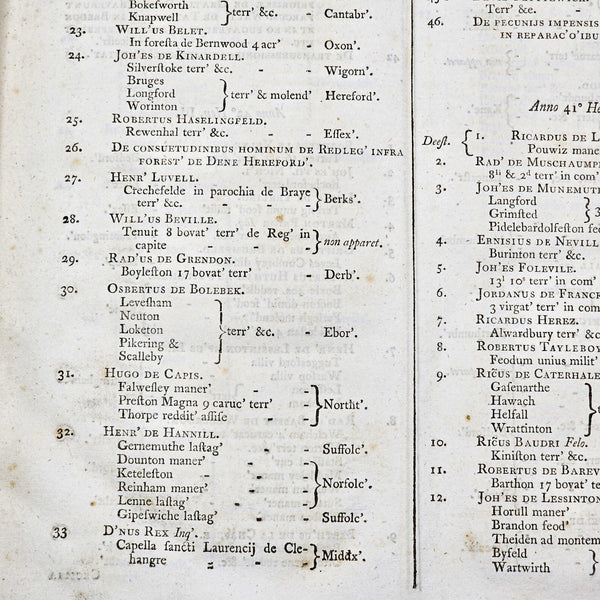 Bokefworth
Knapwell } terr' &c. - Cantabr'.
23. WILL'US BELET.
In foresta de Bernwood 4 acr' - Oxon'.
24. JOH'ES DE KINARDELL.
Silverstoke terr' &c. - - Wigorn'.
Bruges
Longford } terr' & molend' Hereford'.
Worinton
25. ROBERTUS HASELINGFELD.
Rewenhal terr' &c. - - Essex'.
26. DE CONSUETUDINIBUS HOMINUM DE REDLEG' INFRA
FOREST' DE DENE HEREFORD'.
27. HENR' LUVELL.
Crechefelde in parochia de Braye
terr' &c. - - - } Berks'.
28. WILL'US BEVILLE.
Tenuit 8 bovat' terr' de Reg' in
capite - - - } non apparet.
29. RAD'US DE GRENDON.
Boyleston 17 bovat' terr' - Derb'.
30. OSBERTUS DE BOLEBEK.
Levesham
Neuton
Loketon } terr' &c. - Ebor'.
Pikering &
Scalleby
31. HUGO DE CAPIS.
Falwesley maner' - -
Preston Magna 9 caruc' terr' - } Northt'.
Thorpe reddit' assise - -
32. HENR' DE HANNILL.
Gernemuthe lastag' - - Suffolc'.
Dounton maner' - -
Keteleston - - -
Reinham maner' - - } Norfolc'.
Lenne lastag' - -
Gipeswiche lastag' - - Suffolc'.
33 D'NUS REX Inq'.
Capella sancti Laurencij de Cle-
hangre - - - } Middx'.
Terr' &c. -
46. DE PECUNIJS IMPENSIS
IN REPARAC'O'IBU
Anno 41° He
Deest. { 1. RICARDUS DE L
Pouwiz mane
2. RAD' DE MUSCHAUMP
8li & 2d terr' in com'
3. JOH'ES DE MUNEMUT
Langford
Grimsted }
Pidelebardolfeston feo
4. ERNISIUS DE NEVILL
Burinton terr' &c.
5. JOH'ES FOLEVILE.
13s 10d terr' in com'
6. JORDANUS DE FRANCK
3 virgat' terr' in com'
7. RICARDUS HEREZ.
Alwardbury terr' &c
8. ROBERTUS TAYLEBOY
Feodum unius milit'
9. RIC̃US DE CATERHALE
Gasenarthe
Hawach
Helfall
Wrattinton
10. RIC̃US BAUDRI Felo.
Kiniston terr' &c.
11. ROBERTUS DE BAREV
Barthon 17 bovat' te
12. JOH'ES DE LESSINTON
Horull maner'
Brandon feod'
Theiden ad montem
Byfeld
Wartwirth {